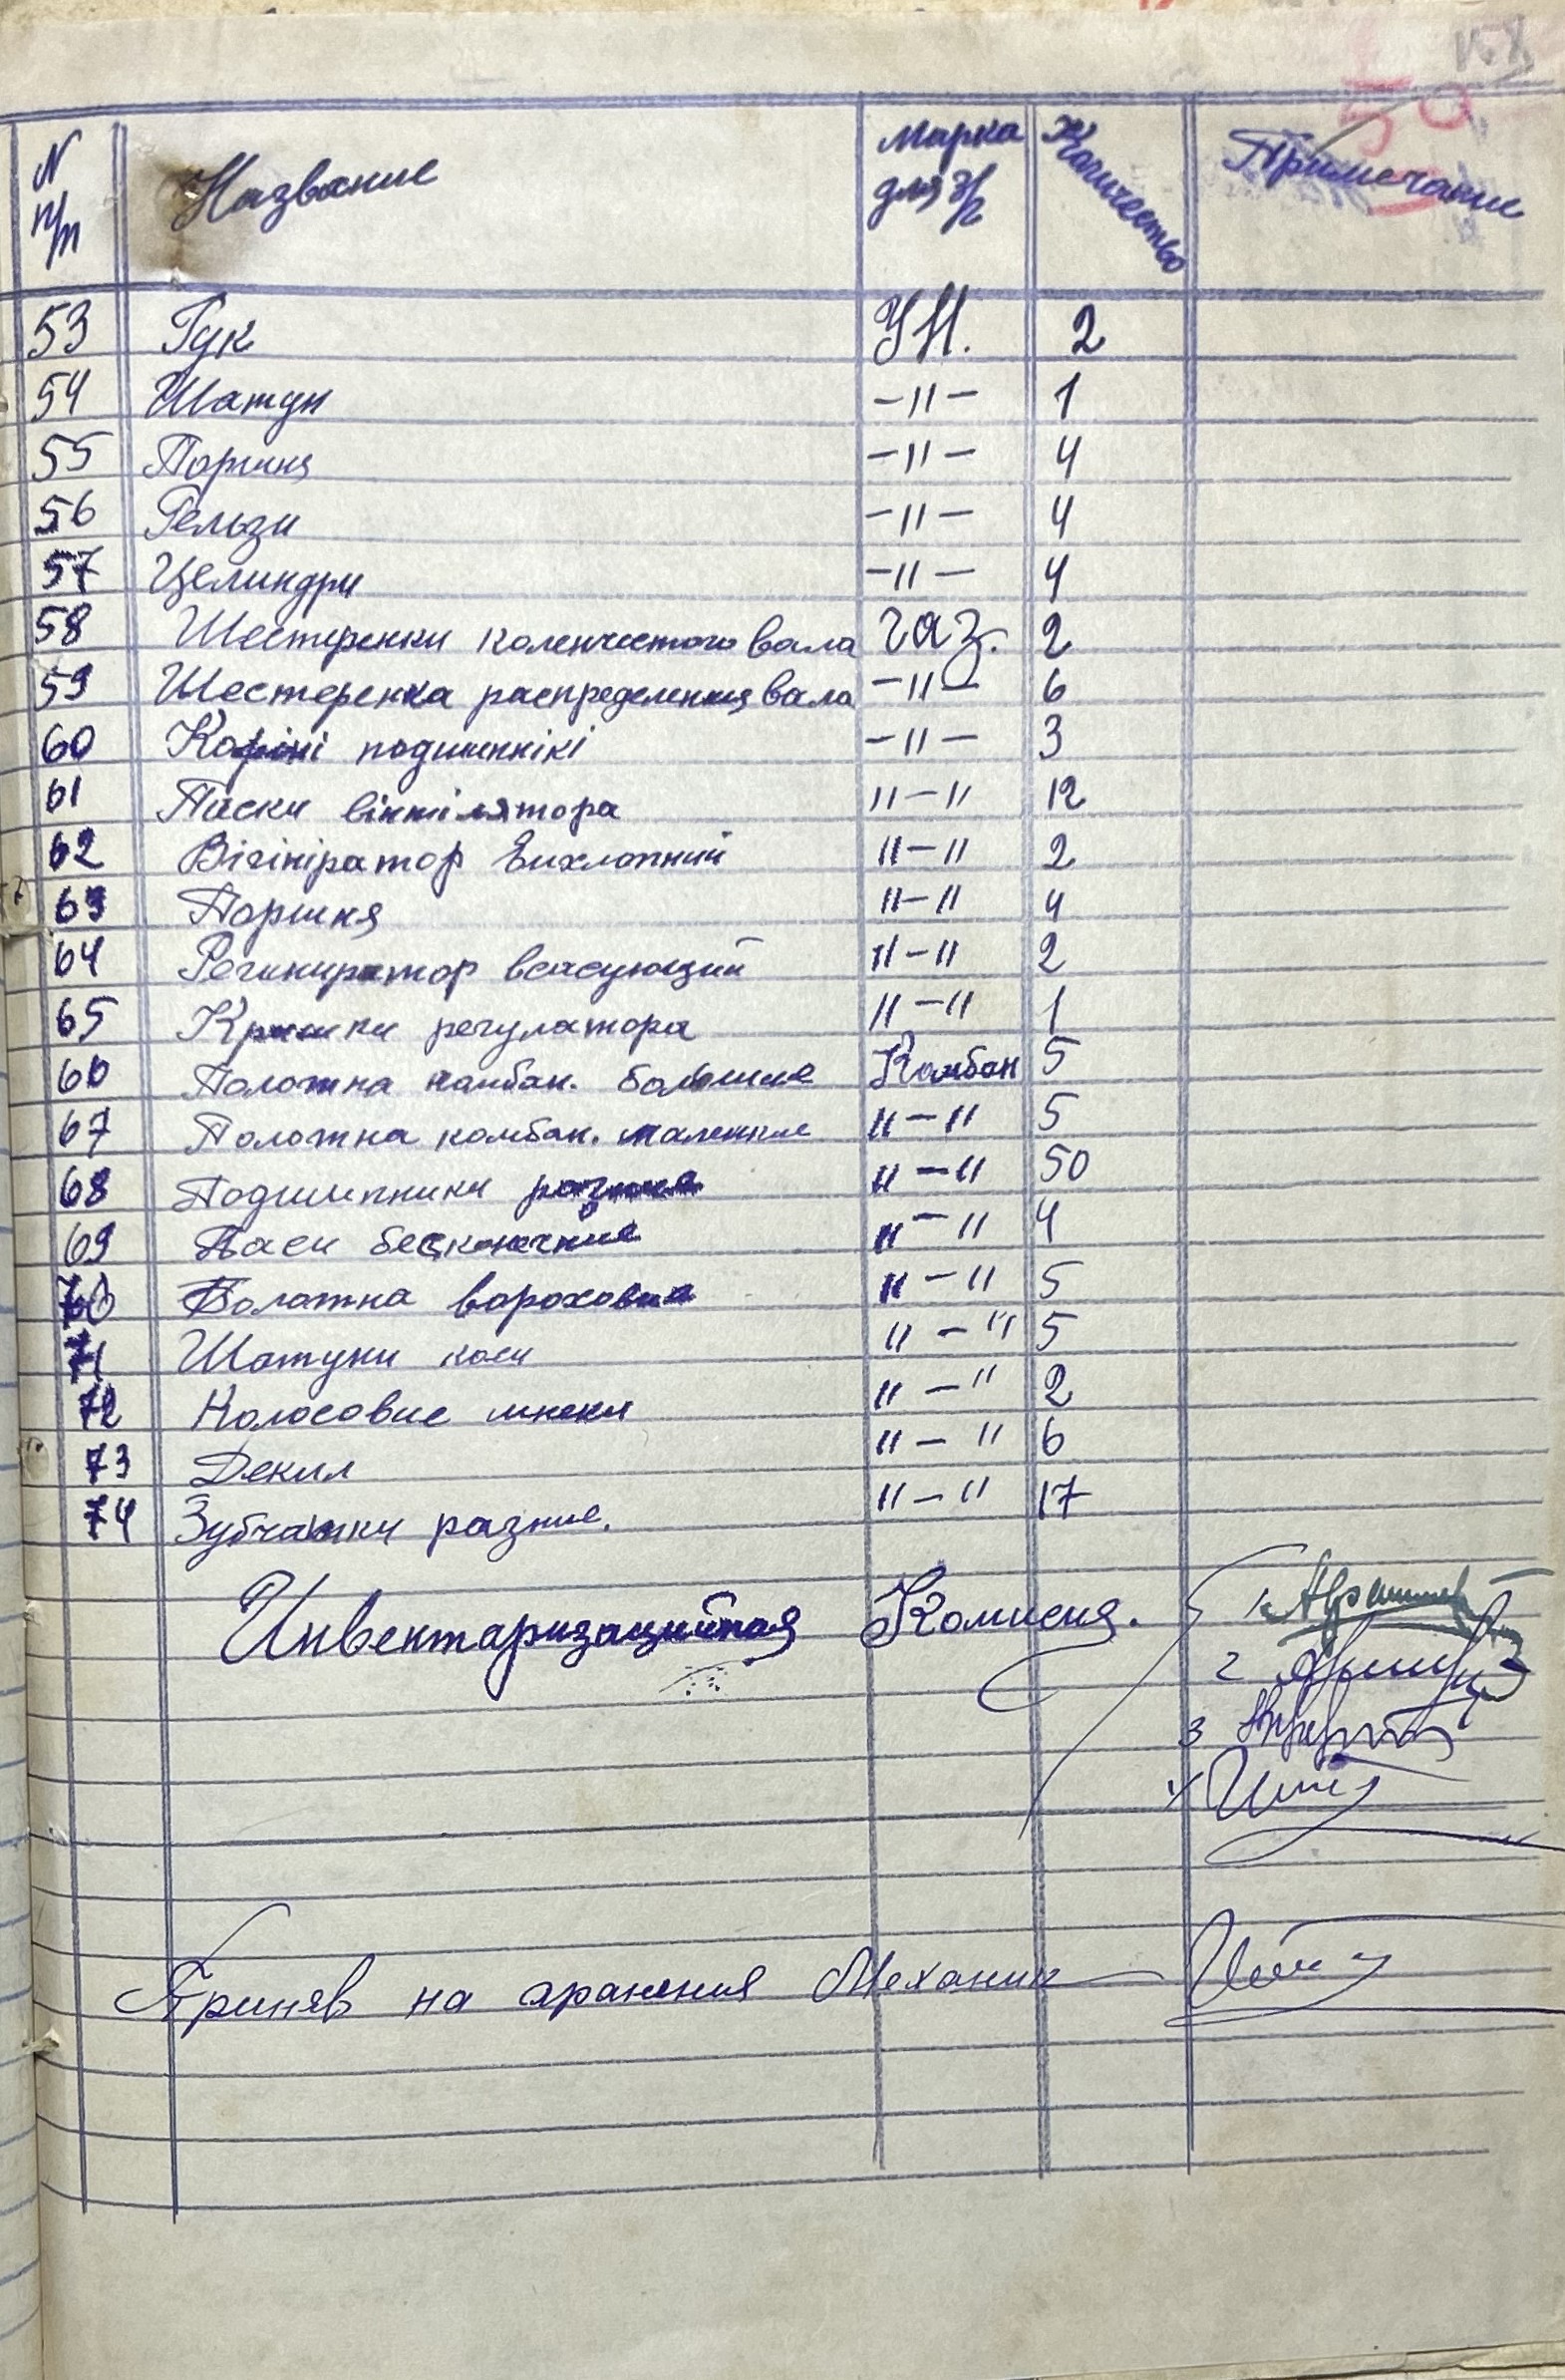 N п/п Название марка для з/ч Количество Примечание
53 Гук УН. 2
54 Шатун -"- 1
55 Поршня -"- 4
56 Гельзи -"- 4
57 Целиндри -"- 4
58 Шестеренки коленчестого вала газ. 2
59 Шестеренка распределения вала -"- 6
60 Коріні подшипнікі -"- 3
61 Паски вінтілятора "-" 12
62 Вігініратор вихлопний "-" 2
63 Поршня "-" 4
64 Региниратор всасующий "-" 2
65 Кришки регулатора "-" 1
66 Полотна комбан. большие Комбан 5
67 Полотна комбан. маленкие "-" 5
68 Подшипники разние "-" 50
69 Паси бесконечние "-" 4
70 Полотна вороховие "-" 5
71 Шатуни коси "-" 5
72 Колосовие шнеки "-" 2
73 Декил "-" 6
74 Зубчатки разние. "-" 17
Инвентаризацийная Комисия. 1.
2
3
4
Приняв на хранения Механик